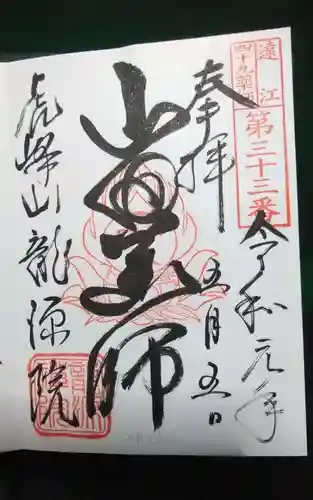 遠江
四十九薬師
第三十三番
奉拝
令和元年
五月五日
虎峰山龍源院